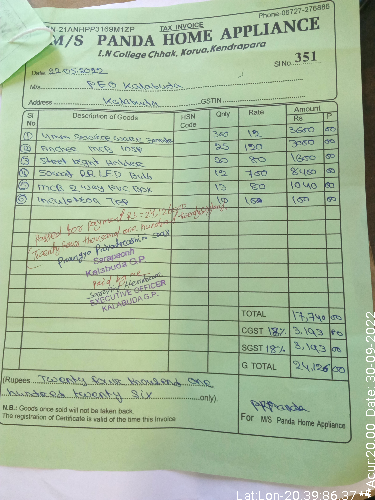 Phone 06727-276886
GSTIN-21ANHPP3169M1ZP
TAX INVOICE
M/S PANDA HOME APPLIANCE
I.N College Chhak, Korua, Kendrapara
Sl No. 351
Date 22-05-2022
M/s. PEO Kalabuda
Address Kalabuda GSTIN
Sl No Description of Goods HSN Code Qnty Rate Amount Rs P
① 300 12 3600 00
② Finolex MCB 10SP 25 120 3000 00
③ Street Light Holder 20 80 1600 00
④ LED Bulb 12 700 8400 00
⑤ MCB 2 way PVC Box 13 80 1040 00
⑥ Insulation Tap 10 100 00
Passed for payment Rs = 24,126/-
Twenty four thousand one hundred
Sarapanch
Kalabuda G.P.
Paid by me
EXECUTIVE OFFICER
KALABUDA G.P.
TOTAL 17,740 00
CGST 18% 3,193 00
SGST 18% 3,193 00
G TOTAL 24,126 00
(Rupees Twenty four thousand one
hundred twenty six only)
N.B.: Goods once sold will not be taken back.
The registration of Certificate is valid of the time this Invoice
PPPanda
For M/S Panda Home Appliance
Lat:Lon-20.39:86.37
Acur20.00 Date 30-09-2022